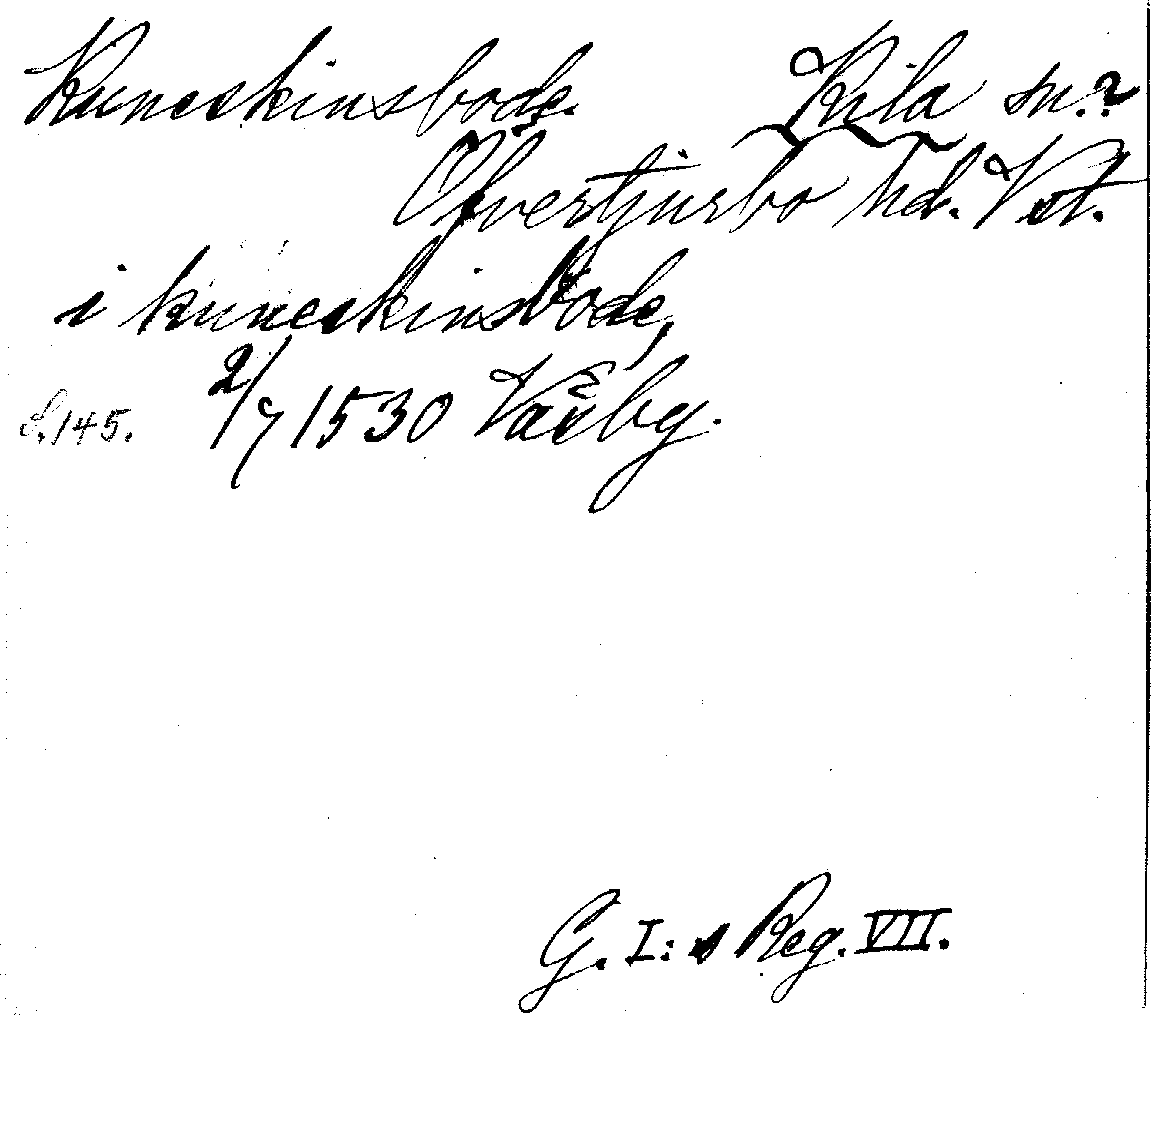 Kuneskinsbode. Kila sn.?
Öfvertjurbo hd. Vst.
i kuneskinsbode,
S. 145. 2/7 1530 Väsby.
G. I:s Reg. VII.